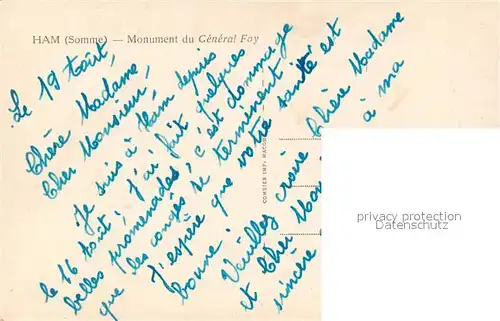 HAM (Somme) — Monument du Général Foy
Le 19 Août,
Chère Madame,
Cher Monsieur,
Je suis à Ham depuis
le 16 août ; j'ai fait quelques
belles promenades, c'est dommage
que les congés se terminent !
J'espère que votre santé est
bonne. Veuillez croire Chère Madame
et Cher Mon
à ma
sincère
COMBIER IMP. MACON
privacy protection
Datenschutz